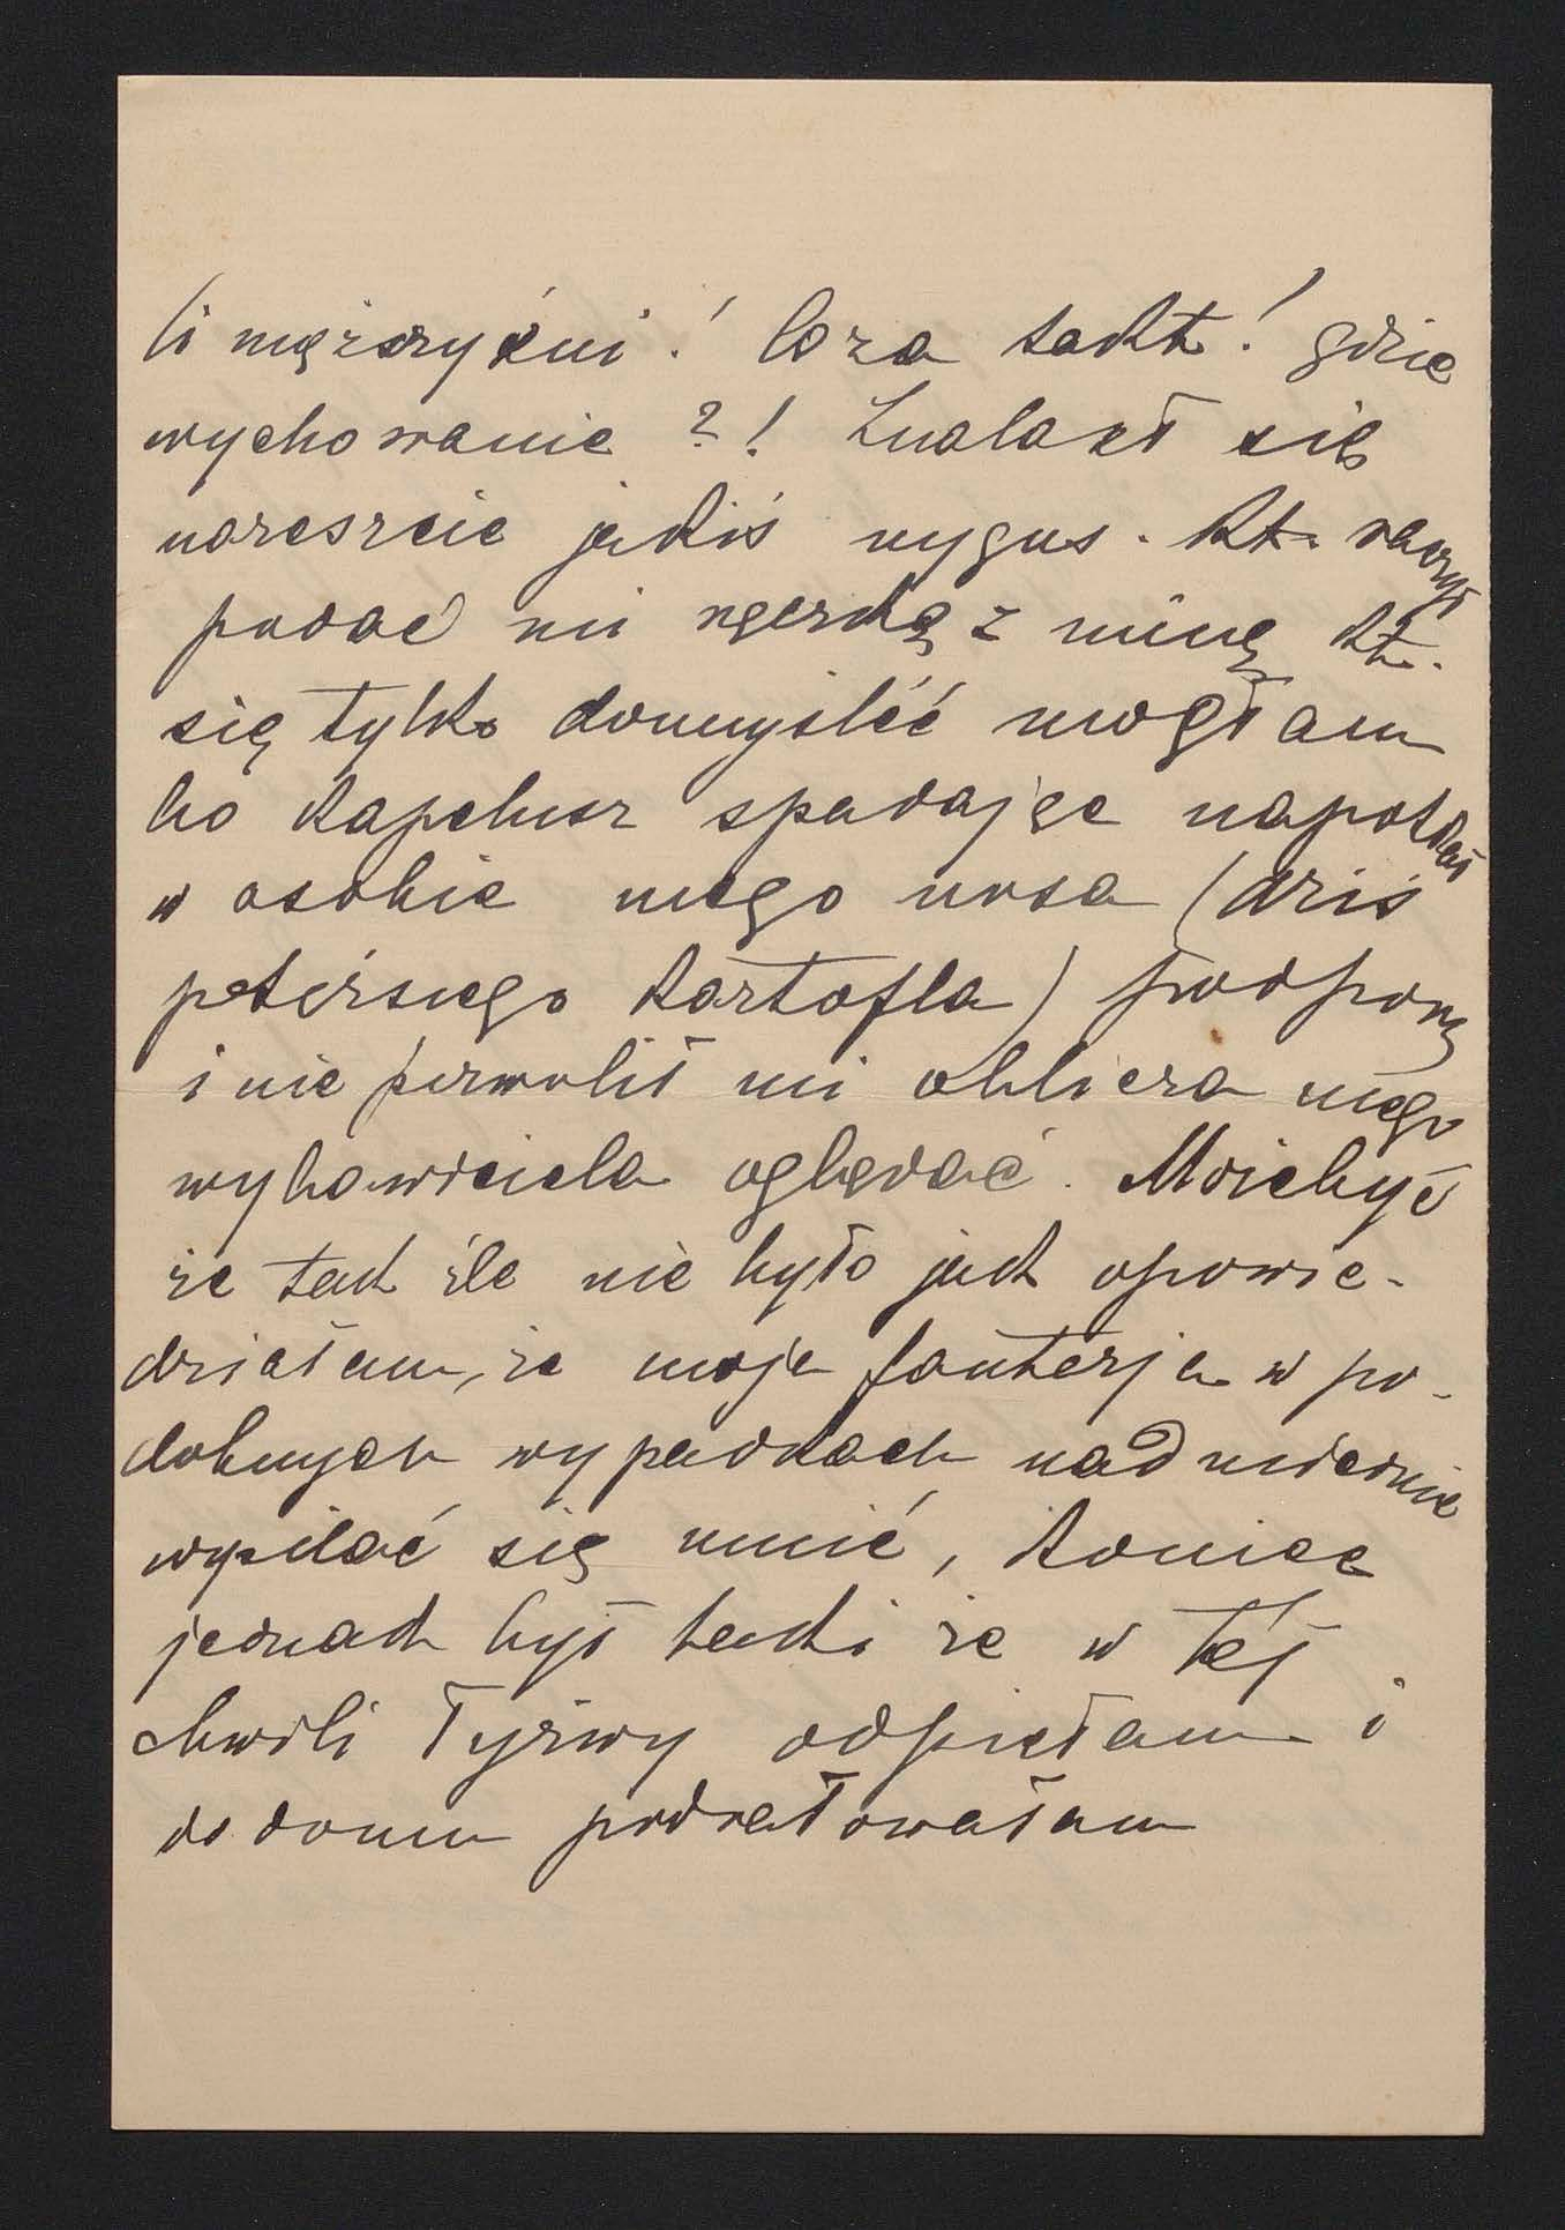 Ci mężczyźni! Co za takt! gdzie
wychowanie?! Znalazł się
nareszcie jakiś nygus. kt. raczył
podać mi rączkę z miną kt.
się tylko domyśleć mogłam
bo kapelusz spadając napotkał
w osobie mego nosa (dziś
potężnego kartofla) podporę
i nie pozwolił mi oblicza mego
wybawiciela oglądać. Może być
że tak źle nie było jak opowie-
działam, że moja fantazja w po-
dobnych wypadkach nadmiernie
wysilać się umie, koniec
jednak był taki że w tej
chwili łyżwy odpięłam i
do domu podrałowałam